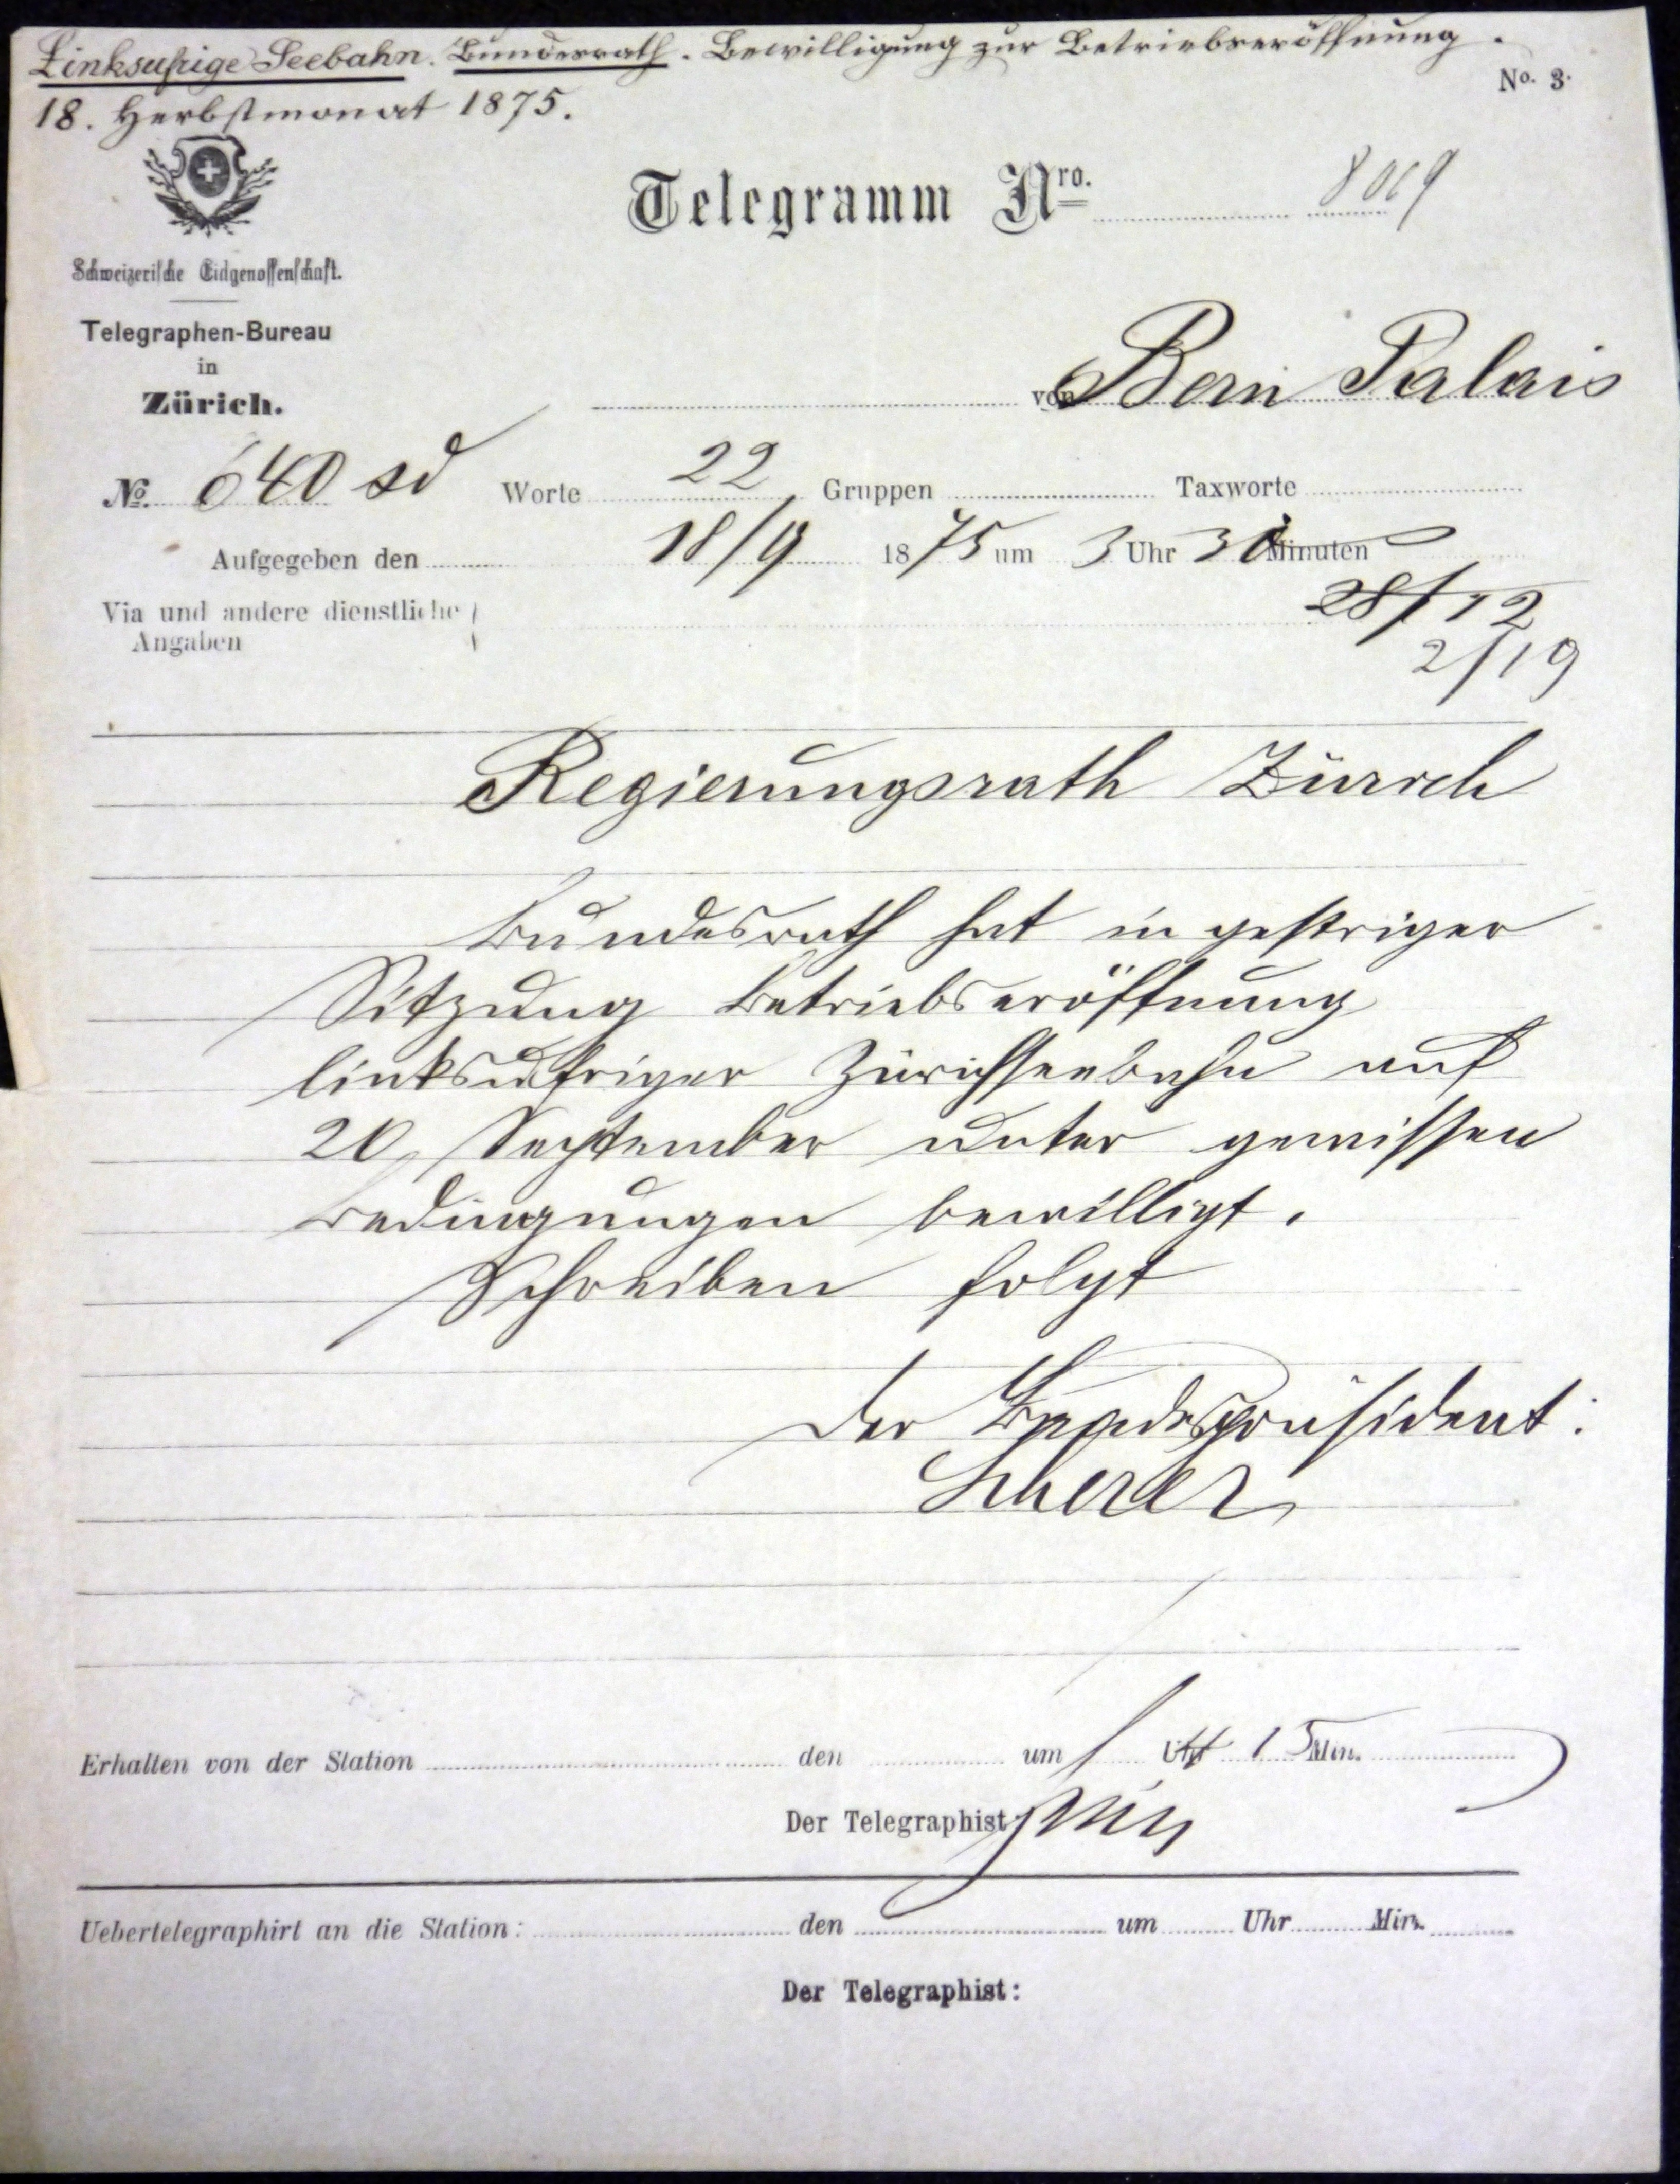 Linksufrige Seebahn. Bundesrath. Bewilligung zur Betriebseröffnung.
No. 3.
18. Herbstmonat 1875.
Telegramm Nro.
Schweizerische Eidgenossenschaft.
Telegraphen-Bureau
in
Zürich.
von Bern Palais
No. 640 sd Worte 22 Gruppen Taxworte
Aufgegeben den 18/9 1875 um 3 Uhr 30 Minuten
Via und andere dienstliche
Angaben
28/12
2/19
Regierungsrath Zürich
Bundesrath hat in gestriger
Sitzung Betriebseröffnung
linksufriger Zürichseebahn auf
20. September unter gewissen
Bedingungen bewilligt.
Schreiben folgt
Der Bundespräsident:
Scherer
Erhalten von der Station den um Uhr 15 Min.
Der Telegraphist
Uebertelegraphirt an die Station: den um Uhr Min.
Der Telegraphist: